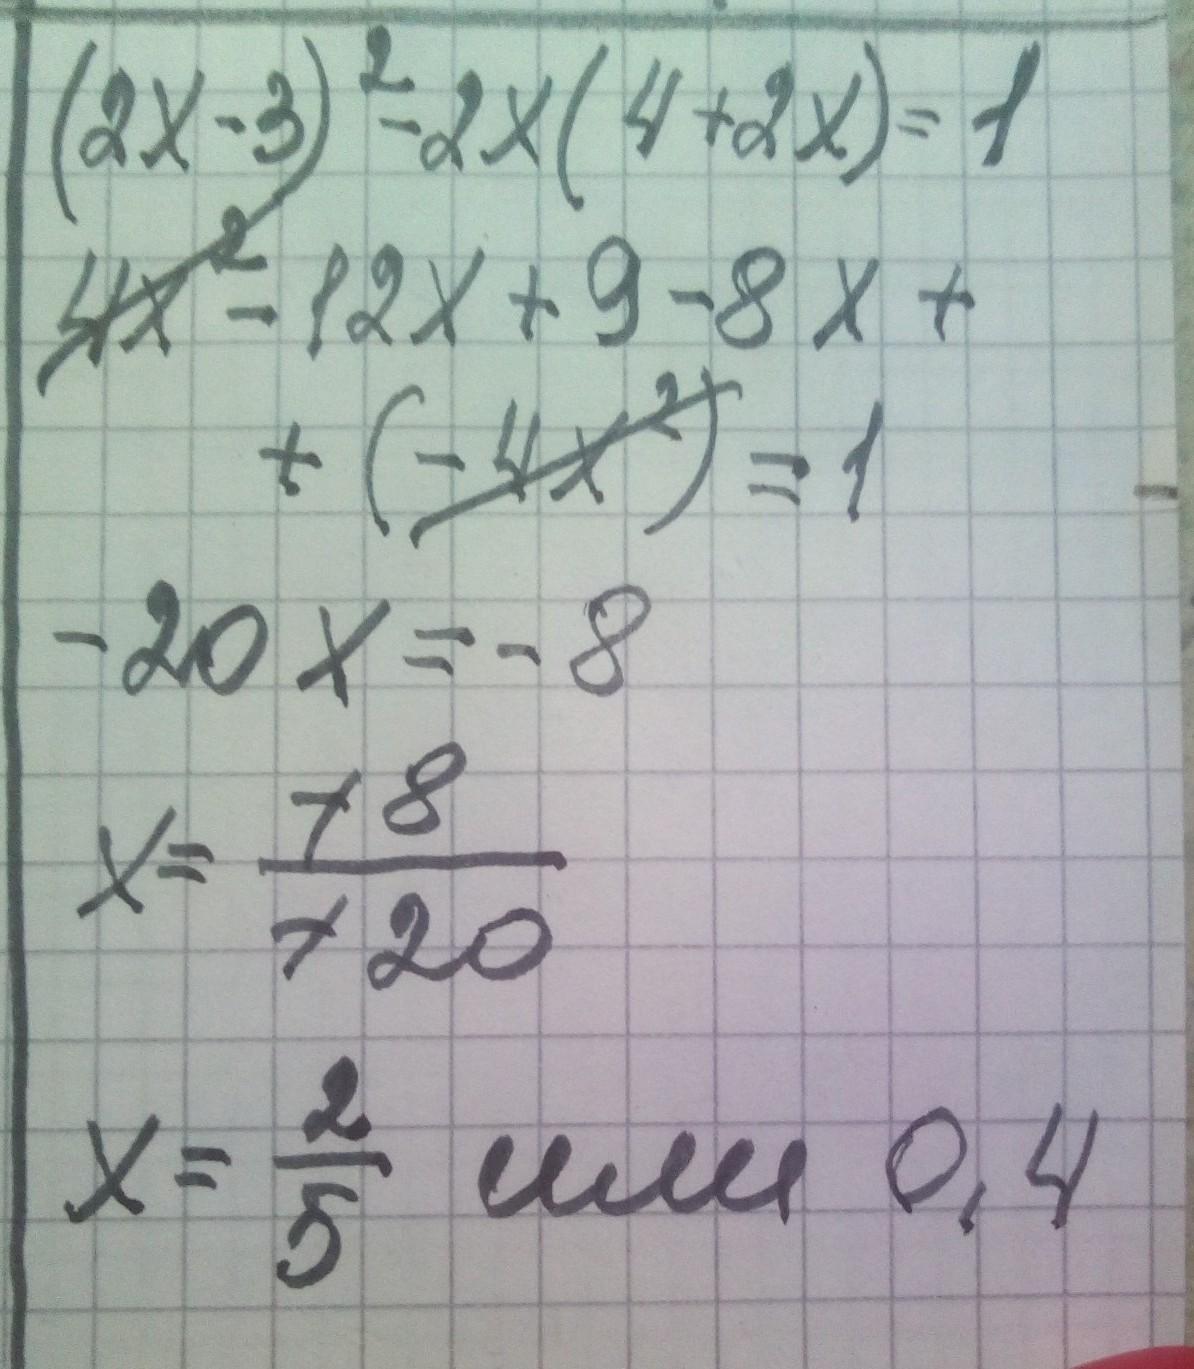 (2x-3)²-2x(4+2x)=1
4x²-12x+9-8x+
+(-4x²)=1
-20x=-8
x=+8/+20
x=2/5 или 0,4